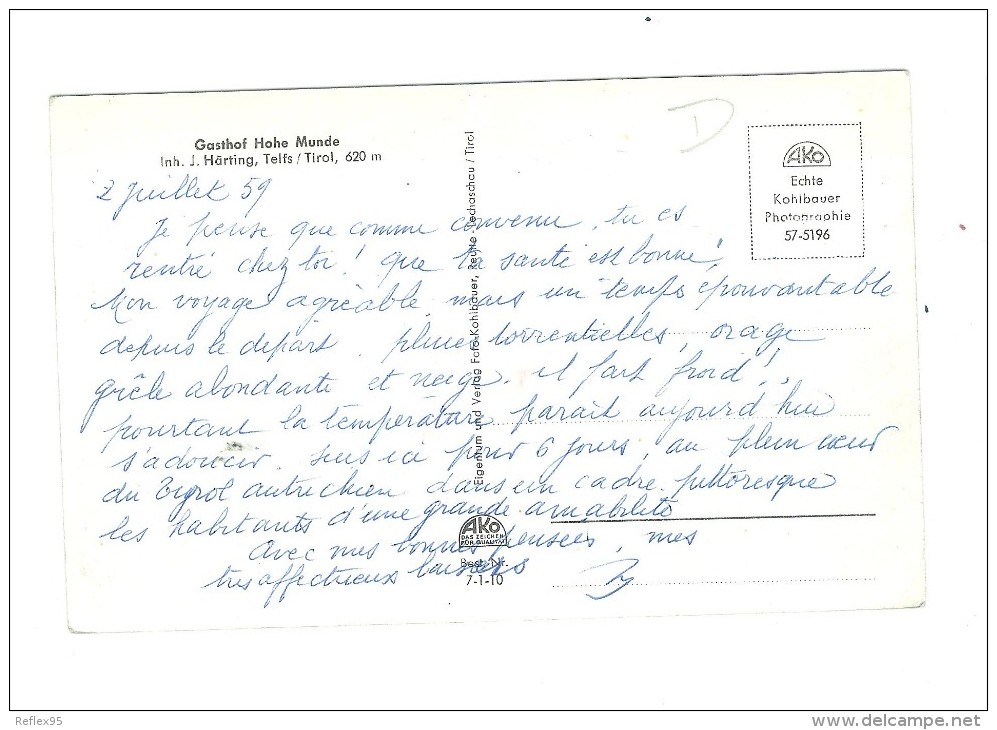 Gasthof Hohe Munde
Inh. J. Härting, Telfs / Tirol, 620 m
D
2 Juillet 59
Je pense que comme convenu, tu es
rentré chez toi! que ta santé est bonne!
Mon voyage agréable, mais un temps épouvantable
depuis le départ. pluies torrentielles, orage
grêle abondante et neige. il fait froid!,
pourtant la température parait aujourd'hui
s'adoucir. suis ici pour 6 jours, au plein cœur
du Tyrol autrichien dans un cadre pittoresque
les habitants d'une grande amabilité
Avec mes bonnes pensées, mes
tres affectueux baisers
Eigentum und Verlag Foto-Kohlbauer, Reutte-Lechaschau / Tirol
AKO
DAS ZEICHEN
FÜR QUALITÄT
Best. Nr.
7-1-10
AKO
Echte
Kohlbauer
Photographie
57-5196
Reflex95
delcampe.net